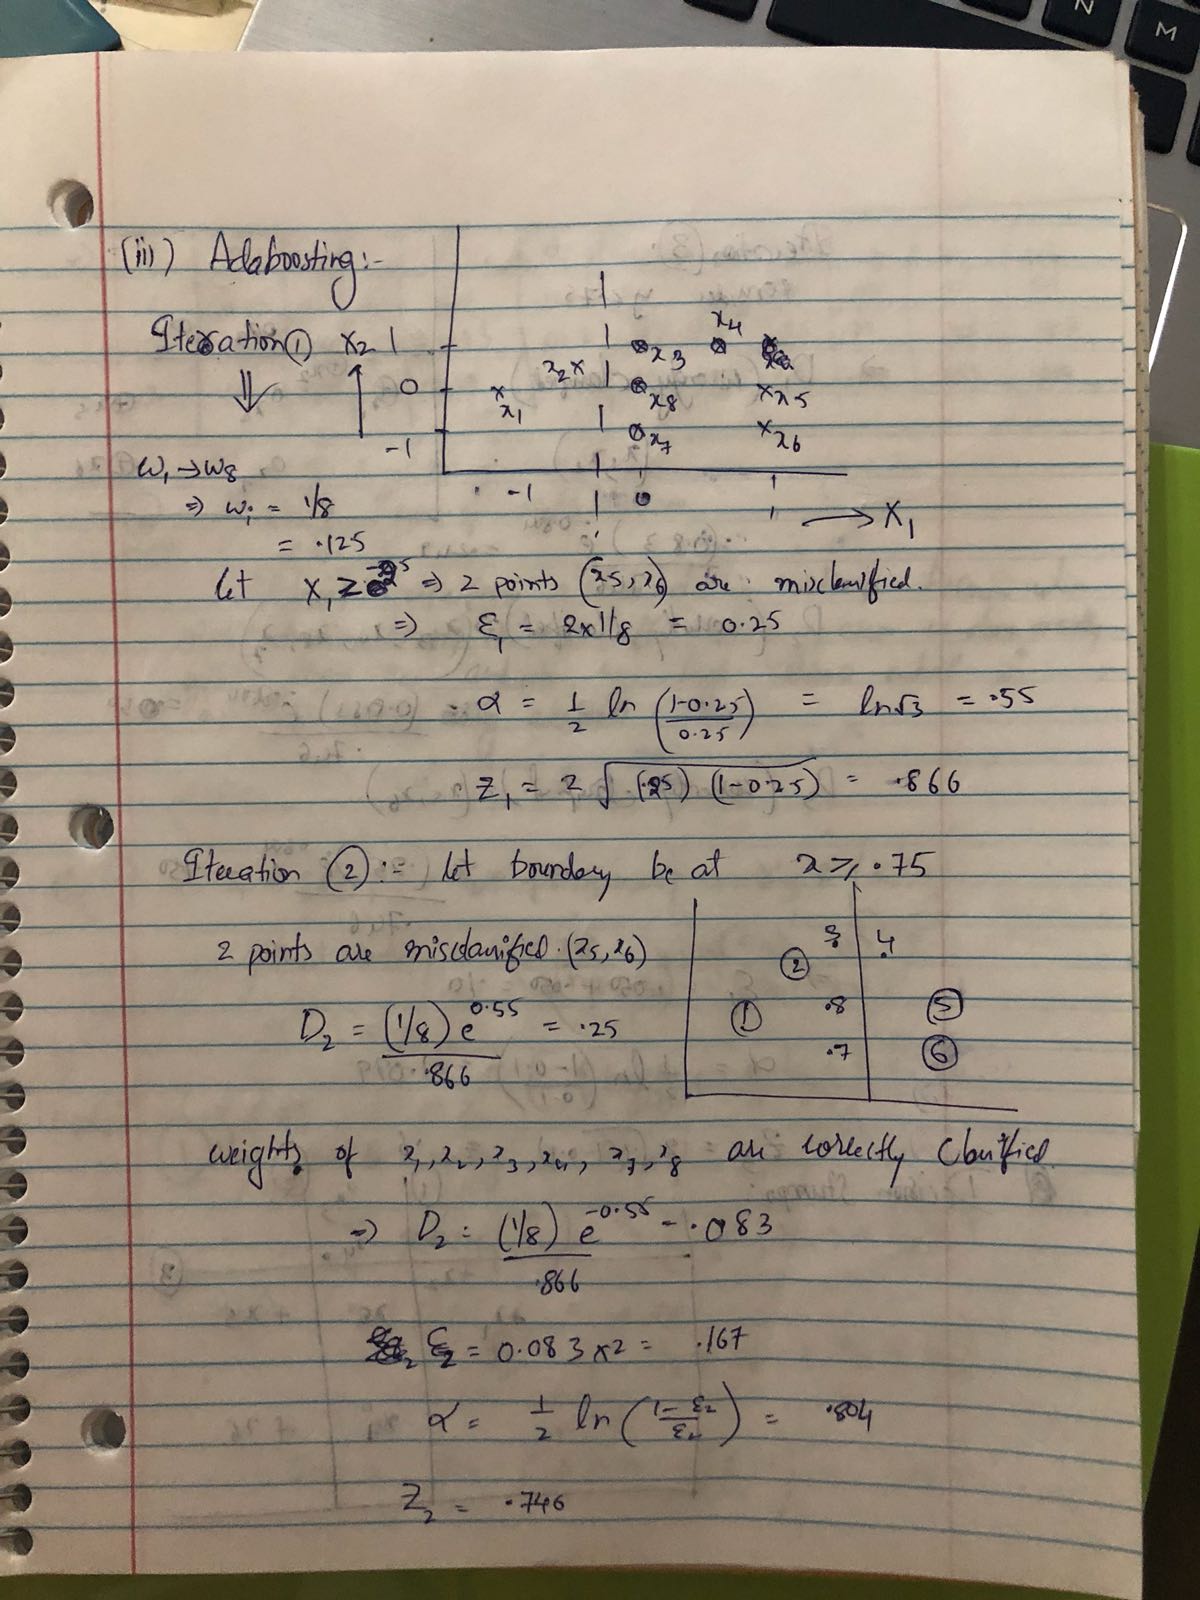 (iii) Adaboosting:-
Iteration ① x2 1
0
-1
x1 x2 x3 x4 x5 x6 x7 x8
-1 0 1 → X1
w1 → w8
⇒ wi = 1/8
= .125
Let x1 ≥ -.5 ⇒ 2 points (x5, x6) are misclassified.
⇒ ε1 = 2x1/8 = 0.25
α = 1/2 ln (1-0.25 / 0.25) = ln√3 = .55
Z1 = 2 √(.25) (1-0.25) = .866
Iteration ② :- Let boundary be at x ≥ .75
2 points are misclassified. (x5, x6)
3 4
②
① .8 ⑤
.7 ⑥
D2 = (1/8) e^0.55 / .866 = .25
weights of x1, x2, x3, x4, x7, x8 are correctly classified.
⇒ D2 = (1/8) e^-0.55 / .866 = .083
ε2 = 0.083 x 2 = .167
α = 1/2 ln (1-ε2 / ε2) = .804
Z2 = .746
N
M